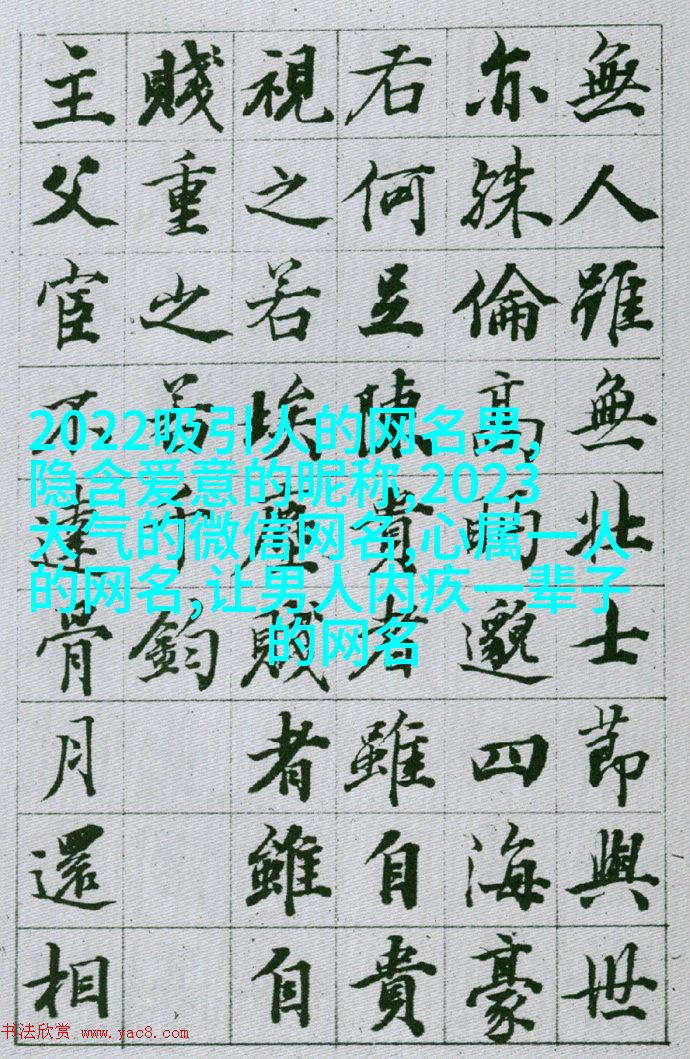 無人雖無壯士節與世
亦殊倫高眄邈四海豪
右何足陳貴者雖自貴
視之若埃塵賤者雖自
賤重之若千鈞
主父宦不達骨月還相
2022吸引人的网名男,
隐含爱意的昵称,2023
大气的微信网名,心属一人
的网名,让男人内疚一辈子
的网名
书法欣赏 www.yac8.com